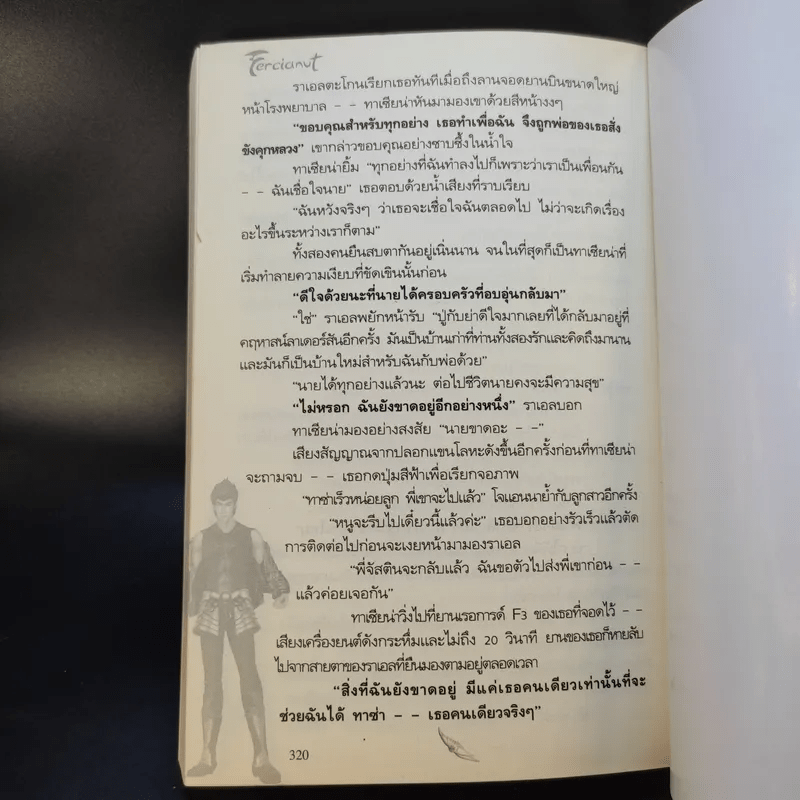 Ferciamut
ราเอลตะโกนเรียกเธอทันทีเมื่อถึงลานจอดยานบินขนาดใหญ่
หน้าโรงพยาบาล – – ทาเซียน่าหันมามองเขาด้วยสีหน้างงๆ
“ขอบคุณสำหรับทุกอย่าง เธอทำเพื่อฉัน จึงถูกพ่อของเธอสั่ง
ขังคุกหลวง” เขากล่าวขอบคุณอย่างซาบซึ้งในน้ำใจ
ทาเซียน่ายิ้ม “ทุกอย่างที่ฉันทำลงไปก็เพราะว่าเราเป็นเพื่อนกัน
– – ฉันเชื่อใจนาย” เธอตอบด้วยน้ำเสียงที่ราบเรียบ
“ฉันหวังจริงๆ ว่าเธอจะเชื่อใจฉันตลอดไป ไม่ว่าจะเกิดเรื่อง
อะไรขึ้นระหว่างเราก็ตาม”
ทั้งสองคนยืนสบตากันอยู่เนิ่นนาน จนในที่สุดก็เป็นทาเซียน่าที่
เริ่มทำลายความเงียบที่ขัดเขินนั้นก่อน
“ดีใจด้วยนะที่นายได้ครอบครัวที่อบอุ่นกลับมา”
“ใช่” ราเอลพยักหน้ารับ “ปู่กับย่าดีใจมากเลยที่ได้กลับมาอยู่ที่
คฤหาสน์ลาเดอร์สันอีกครั้ง มันเป็นบ้านเก่าที่ท่านทั้งสองรักและคิดถึงมานาน
และมันก็เป็นบ้านใหม่สำหรับฉันกับพ่อด้วย”
“นายได้ทุกอย่างแล้วนะ ต่อไปชีวิตนายคงจะมีความสุข”
“ไม่หรอก ฉันยังขาดอยู่อีกอย่างหนึ่ง” ราเอลบอก
ทาเซียน่ามองอย่างสงสัย “นายขาดอะ – –”
เสียงสัญญาณจากปลอกแขนโลหะดังขึ้นอีกครั้งก่อนที่ทาเซียน่า
จะถามจบ – – เธอกดปุ่มสีฟ้าเพื่อเรียกจอภาพ
“ทาซ่าเร็วหน่อยลูก พี่เขาจะไปแล้ว” โจแอนนาย้ำกับลูกสาวอีกครั้ง
“หนูจะรีบไปเดี๋ยวนี้แล้วค่ะ” เธอบอกอย่างรัวเร็วแล้วตัด
การติดต่อไปก่อนจะเงยหน้ามามองราเอล
“พี่จัสตินจะกลับแล้ว ฉันขอตัวไปส่งพี่เขาก่อน – –
แล้วค่อยเจอกัน”
ทาเซียน่าวิ่งไปที่ยานเรอการ์ด F3 ของเธอที่จอดไว้ – –
เสียงเครื่องยนต์ดังกระหึ่มและไม่ถึง 20 วินาที ยานของเธอก็หายลับ
ไปจากสายตาของราเอลที่ยืนมองตามอยู่ตลอดเวลา
“สิ่งที่ฉันยังขาดอยู่ มีแค่เธอคนเดียวเท่านั้นที่จะ
ช่วยฉันได้ ทาซ่า – – เธอคนเดียวจริงๆ”
320